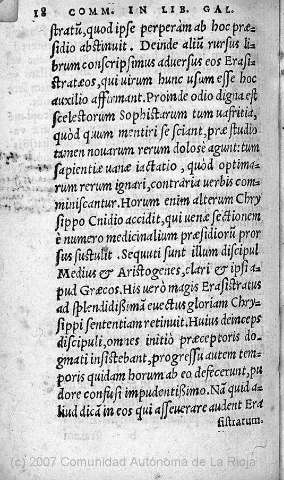 18 COMM. IN LIB. GAL.
stratũ, quod ipse perperàm ab hoc præ-
sidio abstinuit. Deinde aliũ rursus li-
brum conscripsimus adversus eos Erasi-
strateos, qui virum hunc usum esse hoc
auxilio affirmant. Proinde odio digna est
scelectorum Sophistarum tum vafritia,
quòd quum mentiri se sciant, præ studio
tamen novarum rerum dolosè agunt: tum
sapientiæ vanæ iactatio, quòd optima-
rum rerum ignari, contraria verbis com-
miniscantur. Horum enim alterum Chry
sippo Cnidio accidit, qui venæ sectionem
è numero medicinalium præsidiorũ pror
sus sustulit. Sequuti sunt illum discipuli
Medius & Aristogenes, clari & ipsi a-
pud Græcos. His verò magis Erasistratus
ad splendidißimã evectus gloriam Chry-
sippi sententiam retinuit. Huius deinceps
discipuli, omnes initiò præceptoris do-
gmati insistebant, progressu autem tem-
poris quidam horum ab eo defecerunt, pu
dore confusi impudentißimo. Nã quid a-
liud dicã in eos qui asseverare audent Era
sistratum.
(c) 2007 Comunidad Autónoma de La Rioja